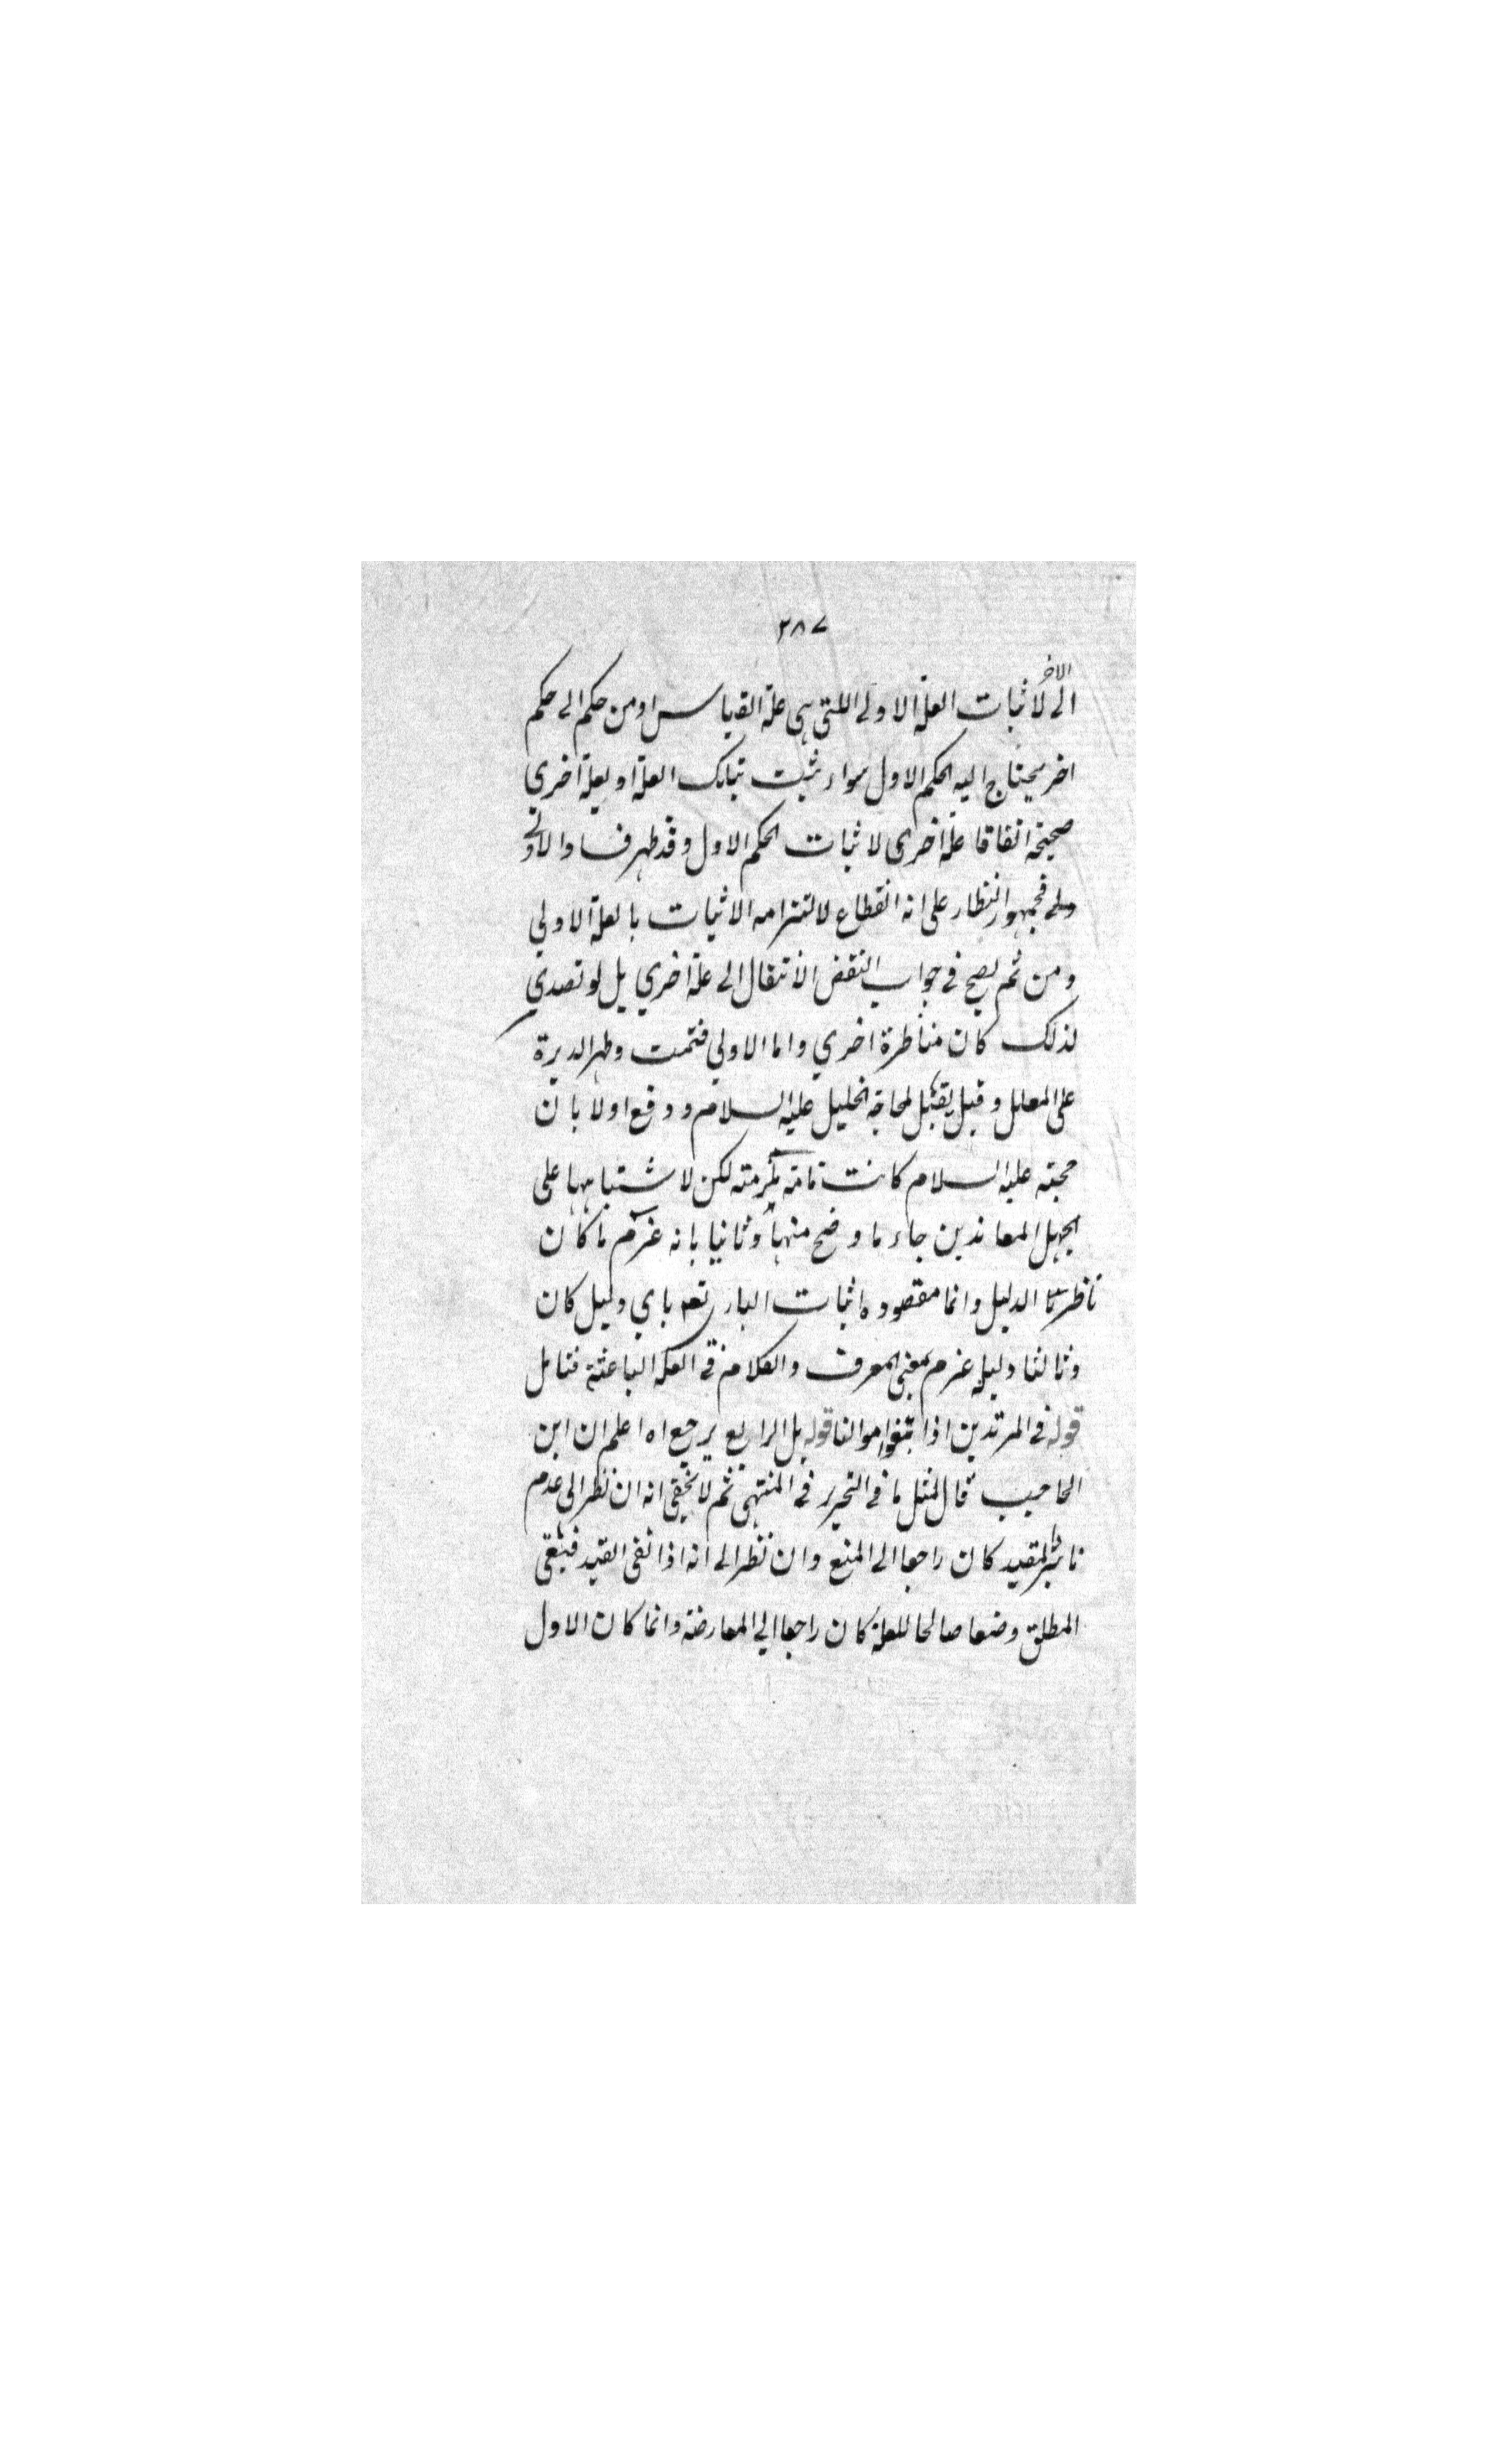 ٢٨٧
الاخر
الى لاثبات العلة الاولى اللتى هى علة القياس او من حكم الى حكم
اخر يحتاج اليه الحكم الاول سواء ثبت بتلك العلة او بعلة اخري
صحيحة اتفاقا علة اخرى لاثبات الحكم الاول وقد ظهر فساد الاولى
فجمهور النظار على انه انقطاع لالتزامه الاثبات بالعلة الاولي
ومن ثم لم يصح في جواب النقض الانتقال الى علة اخري بل لو تصدي
لذلك كان مناظرة اخري واما الاولي فتمت وظهر الدبرة
على المعلل وقيل يقبل لمحاجة الخليل عليه السلام ودفع اولا بان
حجته عليه السلام كانت تامة ملزمة لكن لاشتباهها على
الجهل المعاندين جاء باوضح منها وثانيا بانه عزم ما كان
ناظرنا الدليل وانما مقصوده اثبات الباري تعه باي دليل كان
وثالثا دليله عزم بمعنى المعرف والكلام في العلة الباعثة فتامل
قوله في المرتدين اذا اتلفوا اموالنا قوله بل الرابع يرجع اه اعلم ان ابن
الحاجب قال لمثل ما في التحرير في المنتهى ثم لا يخفى انه ان نظر الى عدم
تاثير القيد كان راجعا الى المنع وان نظر الى انه اذا نفى القيد فبقى
المطلق وضعا صالحا للعلة كان راجعا الي المعارضة وانما كان الاول